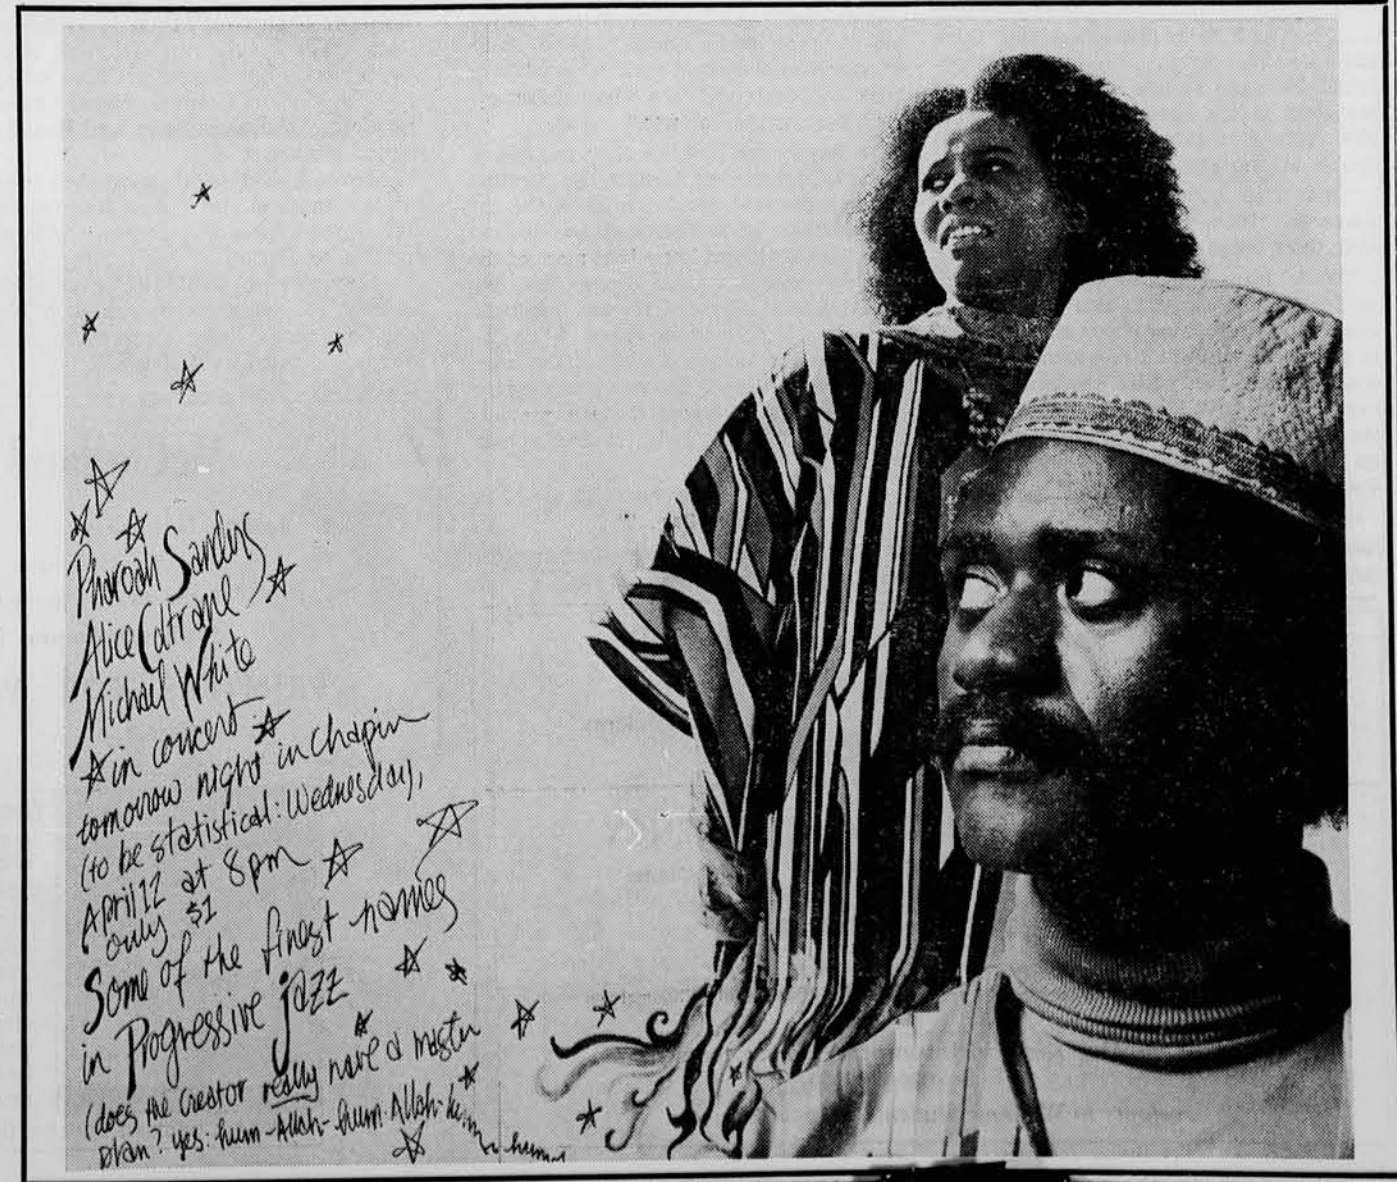 Pharoah Sanders
Alice Coltrane
Michael White
in concert
tomorrow night in Chapin
(to be statistical: Wednesday,
April 12 at 8pm
only $1
Some of the finest names
in Progressive jazz
(does the Creator really have a master
plan? yes: hum-Allah-hum-Allah-hum-humm